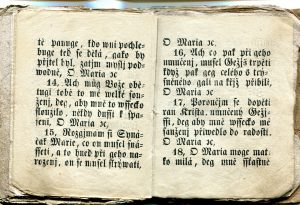 té panuge, kdo wni pochle-
buge teď se dělá, gako by
přjtel byl, zatim mysly pod-
wodné, O Maria ꝛc.
14. Ach můg Bože obě-
tugi tobě to mé welké sou-
ženj, deg, aby mně to wssecko
slaužilo, někdy dussi k spa-
senj, O Maria ꝛc.
15. Rozgjmám si Syná-
čka Marie, co on musel sná-
sseti, a to hned při geho na-
rozenj, on se musel skreywati,
O Maria ꝛc.
16. Ach co pak při geho
umučenj, musel Gežjš trpěti
když pak geg celého s try-
zněného gali na křjž přibili,
O Maria ꝛc.
17. Poraučjm se dopěti
ran Krista, umučenj Gežj-
ssi, deg aby mně wssecko mé
saužení přiwedlo do radosti,
O Maria ꝛc.
18, O Maria moge mat-
ko milá, deg mně sstiastné